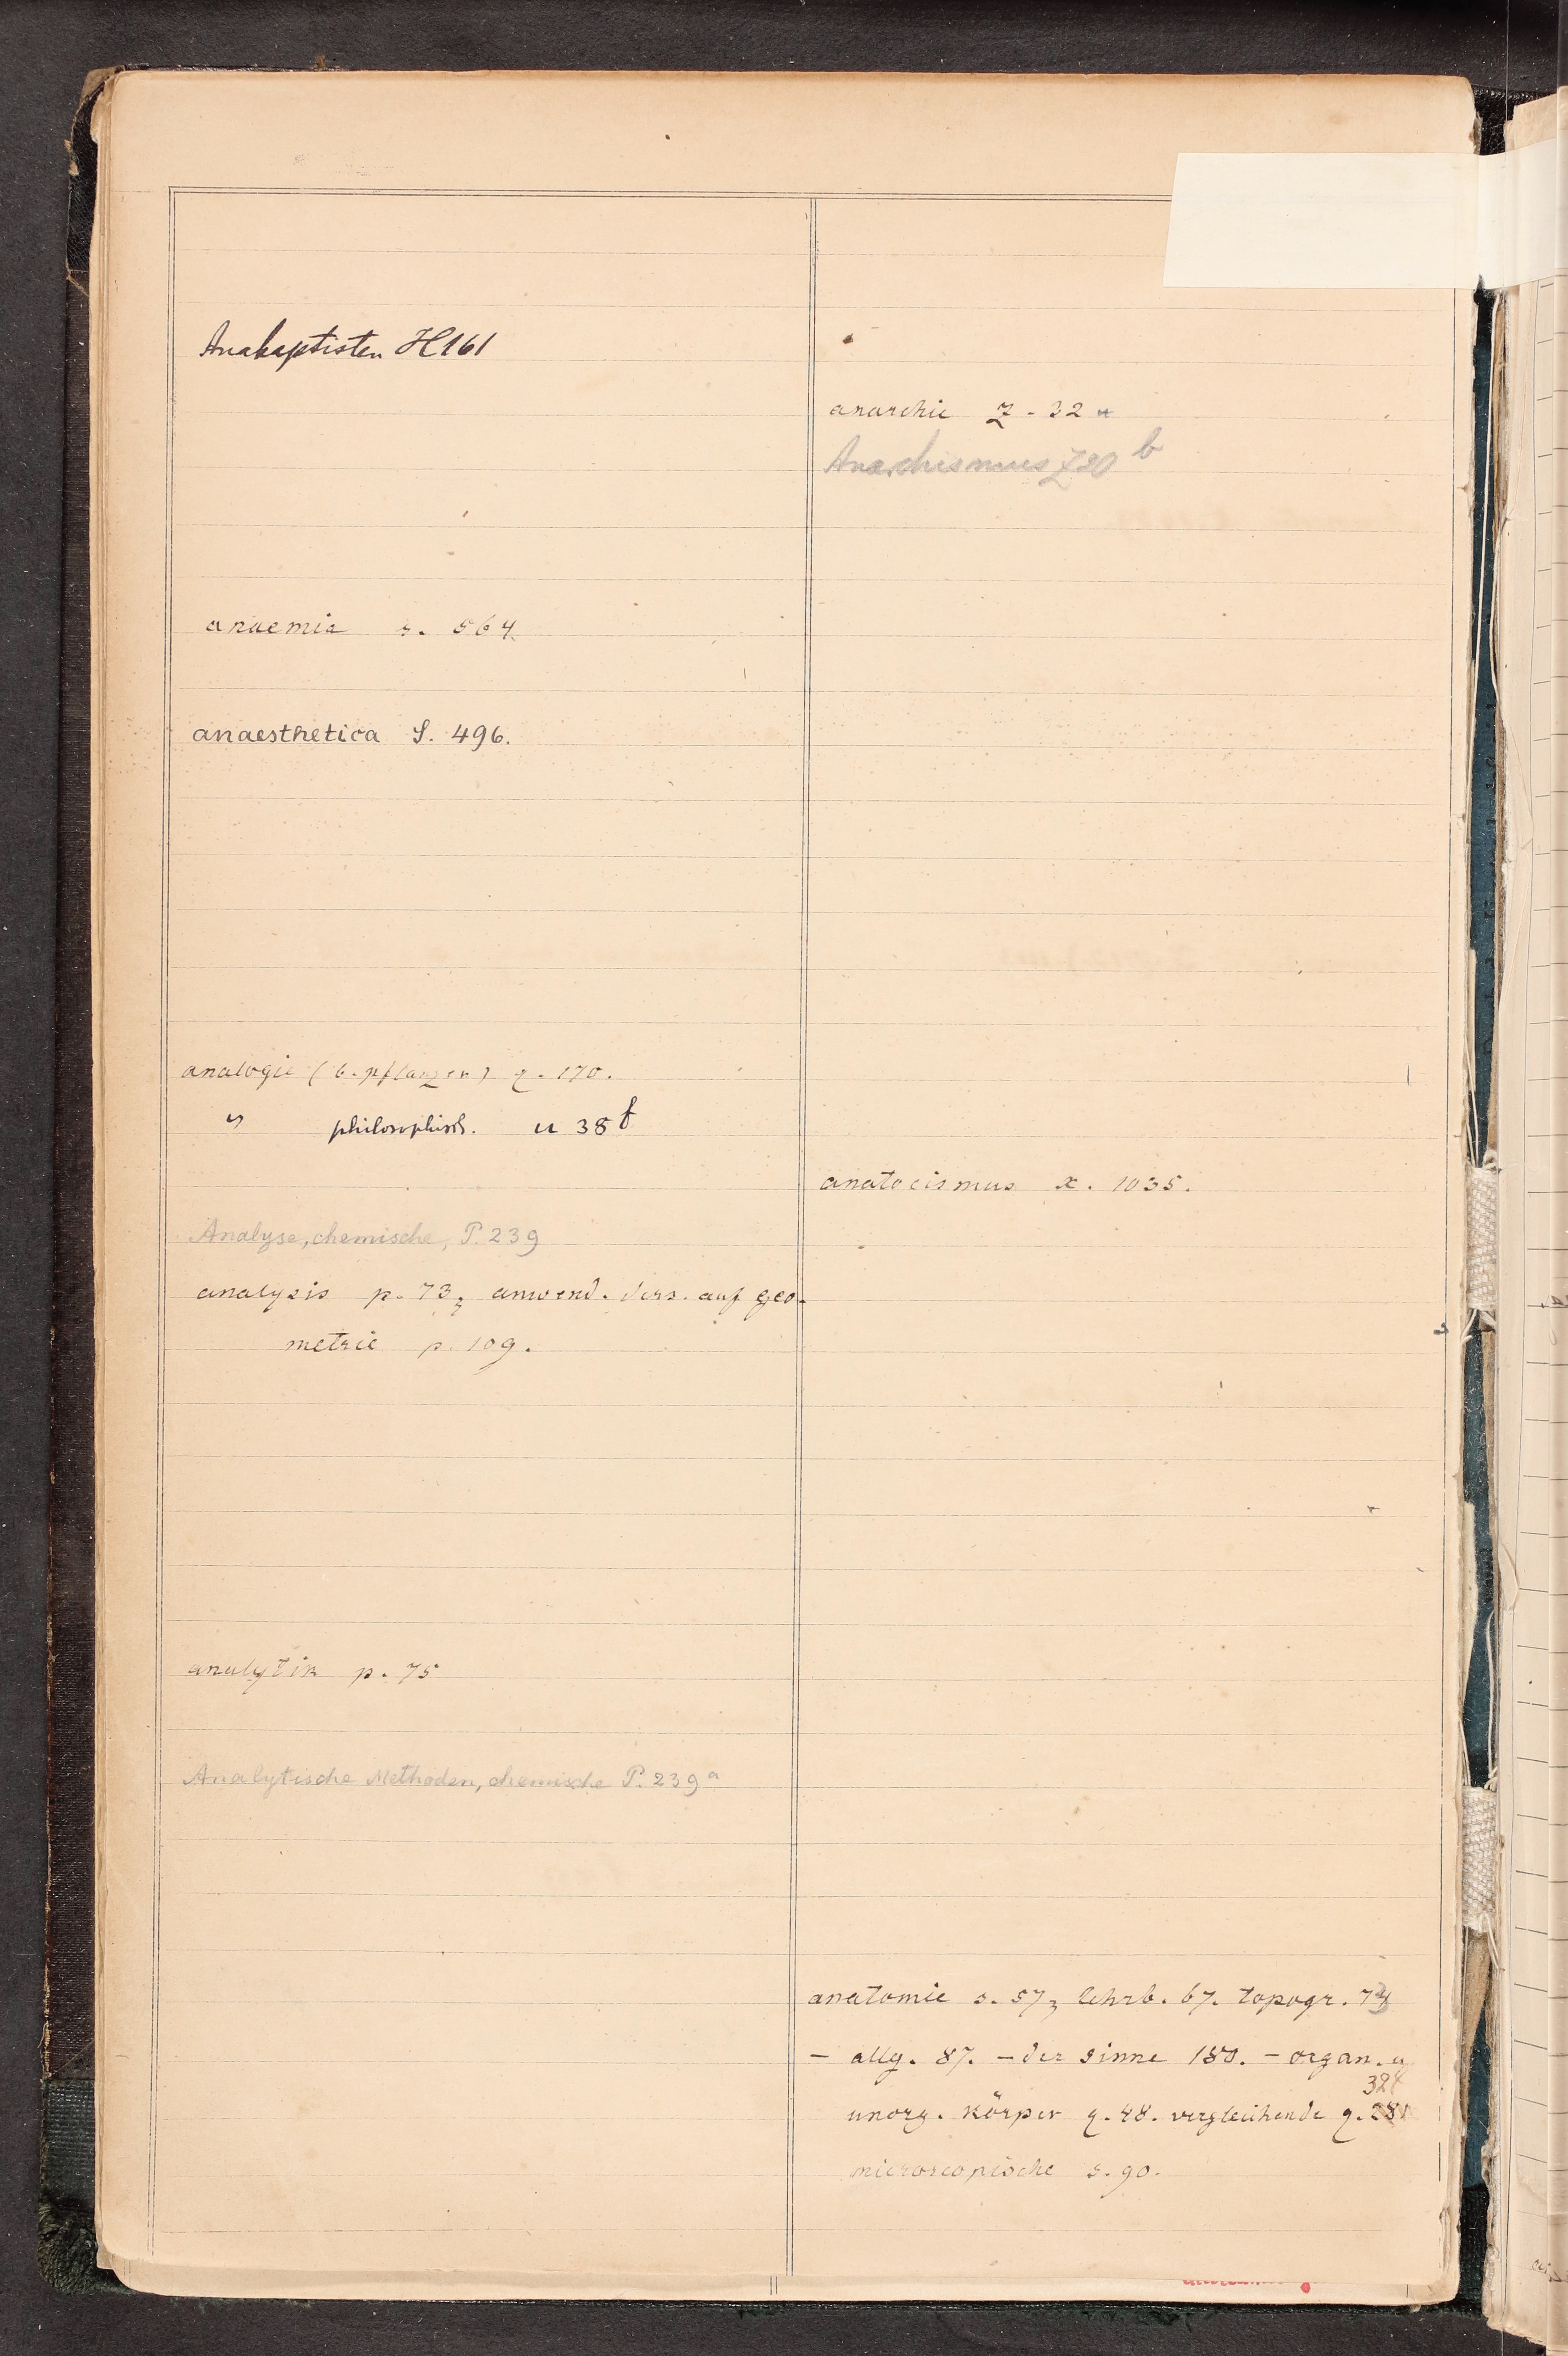 Anabaptisten H 161
anaemie s. 564.
anaesthetica S. 496.
analogie (b. pflanzen) q. 170.
" philosophisch. u 38 f
Analyse, chemische, P. 239
analysis p. 73, anwend. ders. auf geo-
metrie p. 109.
analytik p. 75
Analytische Methoden, chemische P. 239 a
anarchie Z - 32 a
Anarchismus Z 20 b
anatocismus x. 1035.
anatomie s. 57, lehrb. 67. topogr. 74
- allg. 87. - der sinne 180. - organ. u
328
unorg. körper q. 48. vergleichende q.
microscopische s. 90.